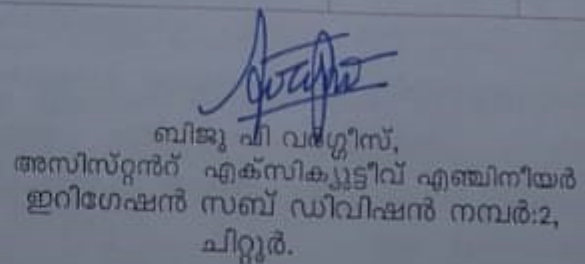 ബിജു പി വർഗ്ഗീസ്,
അസിസ്റ്റൻറ് എക്സിക്യുട്ടീവ് എഞ്ചിനീയർ
ഇറിഗേഷൻ സബ് ഡിവിഷൻ നമ്പർ:2,
ചിറ്റൂർ.